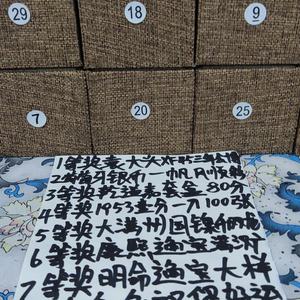 29 18 9
7 20 25
1等奖袁大头
2等奖 银币一帆风顺
3等奖 套全80分
4等奖1953壹分一刀100张
5等奖大满州国镍币
6等奖康熙通宝满汉
7等奖明命通宝大样